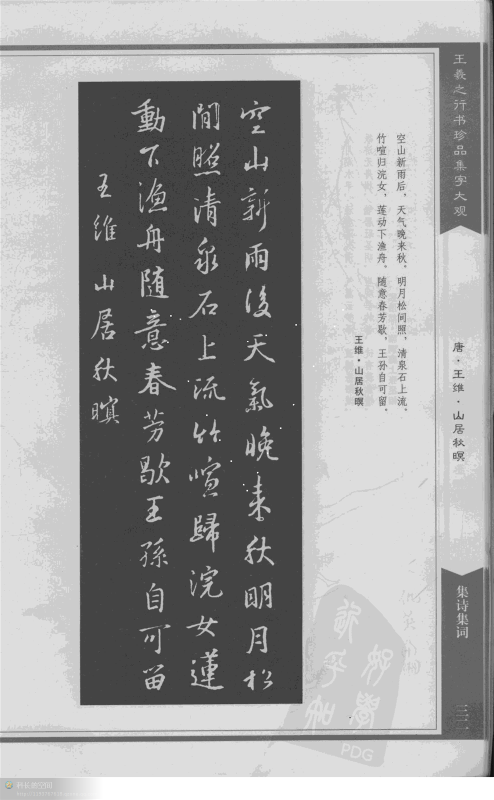 王羲之行书珍品集字大观
唐·王维·山居秋暝
集诗集词
空山新雨后，天气晚来�。明月松间照，清泉石上流。
竹喧归浣女，莲动下渔舟。随意春芳歇，王孙自可留。
王维·山居秋暝
空山新雨後天氣晚来秋明月松
間照清泉石上流竹喧歸浣女蓮
動下漁舟随意春芳歇王孫自可留
王維 山居秋暝
PDG